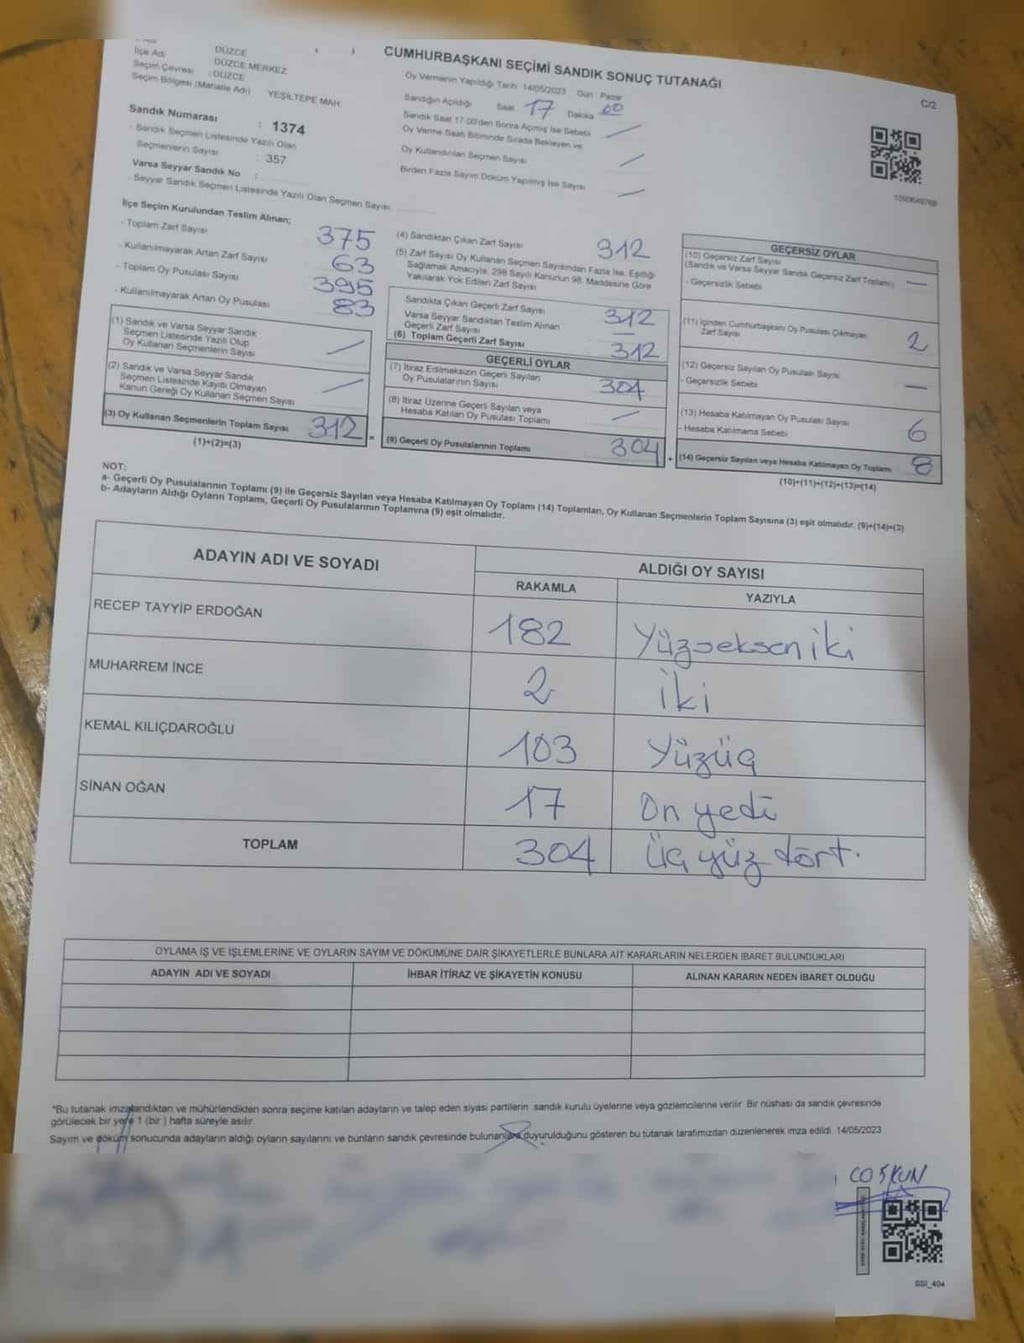 CUMHURBAŞKANI SEÇİMİ SANDIK SONUÇ TUTANAĞI
C/2
İlçe Adı
Seçim Çevresi
Seçim Bölgesi (Mahalle Adı)
DÜZCE
DÜZCE MERKEZ
: DÜZCE
YEŞİLTEPE MAH
Sandık Numarası : 1374
- Sandık Seçmen Listesinde Yazılı Olan
Seçmenlerin Sayısı : 357
Varsa Seyyar Sandık No :
- Seyyar Sandık Seçmen Listesinde Yazılı Olan Seçmen Sayısı
Oy Vermenin Yapıldığı Tarih: 14/05/2023 Gün : Pazar
Sandığın Açıldığı Saat 17 Dakika 00
Sandık Saat 17:00'den Sonra Açılmış İse Sebebi
Oy Verme Saati Bitiminde Sırada Bekleyen ve
Oy Kullandırılan Seçmen Sayısı
Birden Fazla Sayım Döküm Yapılmış İse Sayısı
İlçe Seçim Kurulundan Teslim Alınan;
- Toplam Zarf Sayısı 375
- Kullanılmayarak Artan Zarf Sayısı 63
- Toplam Oy Pusulası Sayısı 395
- Kullanılmayarak Artan Oy Pusulası 83
(1) Sandık ve Varsa Seyyar Sandık
Seçmen Listesinde Yazılı Olup
Oy Kullanan Seçmenlerin Sayısı
(2) Sandık ve Varsa Seyyar Sandık
Seçmen Listesinde Kayıtlı Olmayan
Kanun Gereği Oy Kullanan Seçmen Sayısı
(3) Oy Kullanan Seçmenlerin Toplam Sayısı 312 =
(1)+(2)=(3)
(4) Sandıktan Çıkan Zarf Sayısı 312
(5) Zarf Sayısı Oy Kullanan Seçmen Sayısından Fazla İse, Eşitliği
Sağlamak Amacıyla, 298 Sayılı Kanunun 98. Maddesine Göre
Yakılarak Yok Edilen Zarf Sayısı —
Sandıkta Çıkan Geçerli Zarf Sayısı 312
Varsa Seyyar Sandıktan Teslim Alınan
Geçerli Zarf Sayısı —
(6) Toplam Geçerli Zarf Sayısı 312
GEÇERLİ OYLAR
(7) İtiraz Edilmeksizin Geçerli Sayılan
Oy Pusulalarının Sayısı 304
(8) İtiraz Üzerine Geçerli Sayılan veya
Hesaba Katılan Oy Pusulası Toplamı
(9) Geçerli Oy Pusulalarının Toplamı 304 +
GEÇERSİZ OYLAR
(10) Geçersiz Zarf Sayısı
(Sandık ve Varsa Seyyar Sandık Geçersiz Zarf Toplamı) —
- Geçersizlik Sebebi
(11) İçinden Cumhurbaşkanı Oy Pusulası Çıkmayan
Zarf Sayısı 2
(12) Geçersiz Sayılan Oy Pusulası Sayısı —
- Geçersizlik Sebebi
(13) Hesaba Katılmayan Oy Pusulası Sayısı 6
- Hesaba Katılmama Sebebi
(14) Geçersiz Sayılan veya Hesaba Katılmayan Oy Toplamı 8
(10)+(11)+(12)+(13)=(14)
NOT:
a- Geçerli Oy Pusulalarının Toplamı (9) ile Geçersiz Sayılan veya Hesaba Katılmayan Oy Toplamı (14) Toplamları, Oy Kullanan Seçmenlerin Toplam Sayısına (3) eşit olmalıdır. (9)+(14)=(3)
b- Adayların Aldığı Oyların Toplamı, Geçerli Oy Pusulalarının Toplamına (9) eşit olmalıdır.
ADAYIN ADI VE SOYADI
ALDIĞI OY SAYISI
RAKAMLA YAZIYLA
RECEP TAYYİP ERDOĞAN 182 Yüzseksen iki
MUHARREM İNCE 2 iki
KEMAL KILIÇDAROĞLU 103 Yüzüç
SİNAN OĞAN 17 On yedi
TOPLAM 304 üç yüz dört.
OYLAMA İŞ VE İŞLEMLERİNE VE OYLARIN SAYIM VE DÖKÜMÜNE DAİR ŞİKAYETLERLE BUNLARA AİT KARARLARIN NELERDEN İBARET BULUNDUKLARI
ADAYIN ADI VE SOYADI İHBAR İTİRAZ VE ŞİKAYETİN KONUSU ALINAN KARARIN NEDEN İBARET OLDUĞU
*Bu tutanak imzalandıktan ve mühürlendikten sonra seçime katılan adayların ve talep eden siyasi partilerin sandık kurulu üyelerine veya gözlemcilerine verilir. Bir nüshası da sandık çevresinde
görülecek bir yere 1 (bir ) hafta süreyle asılır.
Sayım ve döküm sonucunda adayların aldığı oyların sayılarını ve bunların sandık çevresinde bulunanlara duyurulduğunu gösteren bu tutanak tarafımızdan düzenlenerek imza edildi. 14/05/2023
COŞKUN
SSİ_404